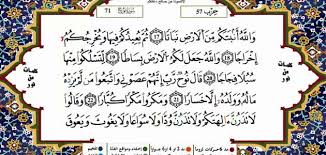 حزب 57
71
وَاللَّهُ أَنبَتَكُم مِّنَ الْأَرْضِ نَبَاتًا ١٧ ثُمَّ يُعِيدُكُمْ فِيهَا وَيُخْرِجُكُمْ
إِخْرَاجًا ١٨ وَاللَّهُ جَعَلَ لَكُمُ الْأَرْضَ بِسَاطًا ١٩ لِّتَسْلُكُوا مِنْهَا
سُبُلًا فِجَاجًا ٢٠ قَالَ نُوحٌ رَّبِّ إِنَّهُمْ عَصَوْنِي وَاتَّبَعُوا مَن لَّمْ يَزِدْهُ
مَالُهُ وَوَلَدُهُ إِلَّا خَسَارًا ٢١ وَمَكَرُوا مَكْرًا كُبَّارًا ٢٢ وَقَالُوا
لَا تَذَرُنَّ آلِهَتَكُمْ وَلَا تَذَرُنَّ وَدًّا وَلَا سُوَاعًا وَلَا يَغُوثَ وَيَعُوقَ
كلمات
من
نور
كلمات
من
نور